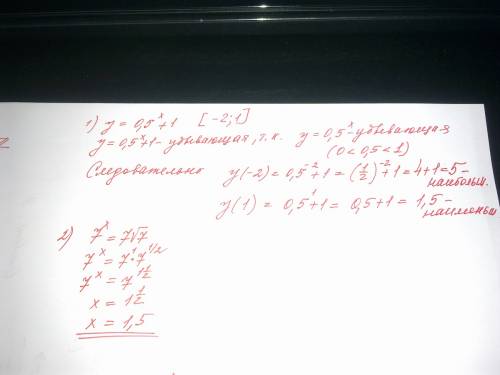 1) y = 0,5^x+1 [-2;1]
y = 0,5^x+1 - убывающая, т.к. y = 0,5^x - убывающая
(0 < 0,5 < 1)
Следовательно y(-2) = 0,5^-2+1 = (1/2)^-2+1 = 4+1=5 -
наибольш.
y(1) = 0,5^1+1 = 0,5+1 = 1,5 -
наименьш
2) 7^x = 7√7
7^x = 7^1·7^1/2
7^x = 7^1 1/2
x = 1 1/2
x = 1,5